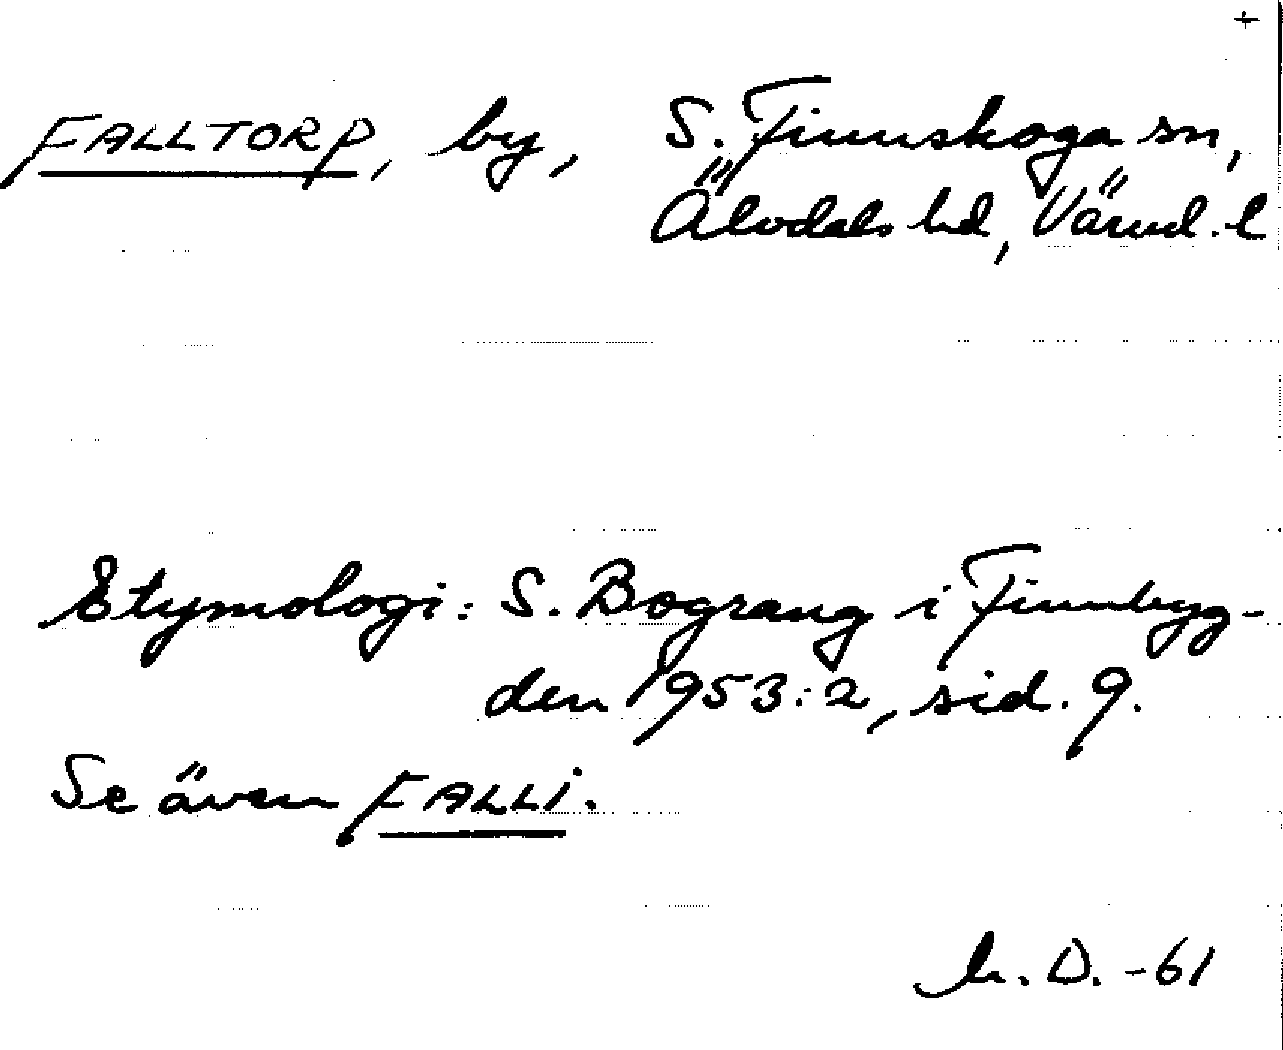 +
FALLTORP, by, S. Finnskoga sn,
Älvdals hd, Värml. l
Etymologi: S. Bograng i Finnbyg-
den 1953:2, sid. 9.
Se även FALLI.
D. -61